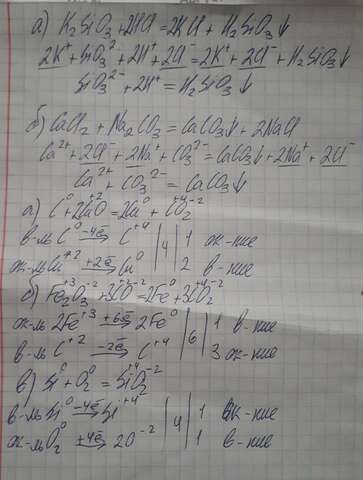 а) K₂SiO₃ + 2HCl = 2KCl + H₂SiO₃↓
2K⁺ + SiO₃²⁻ + 2H⁺ + 2Cl⁻ = 2K⁺ + 2Cl⁻ + H₂SiO₃↓
SiO₃²⁻ + 2H⁺ = H₂SiO₃↓
б) CaCl₂ + Na₂CO₃ = CaCO₃↓ + 2NaCl
Ca²⁺ + 2Cl⁻ + 2Na⁺ + CO₃²⁻ = CaCO₃↓ + 2Na⁺ + 2Cl⁻
Ca²⁺ + CO₃²⁻ = CaCO₃↓
а) C⁰ + 2Cu⁺²O = 2Cu⁰ + C⁺⁴O₂⁻²
в-ль C⁰ –4e→ C⁺⁴ | 4 | 1 ок-ние
ок-ль Cu⁺² +2e→ Cu⁰ | | 2 в-ние
б) Fe₂⁺³O₃⁻² + 3C⁺²O⁻² = 2Fe⁰ + 3C⁺⁴O₂⁻²
ок-ль 2Fe⁺³ +6e→ 2Fe⁰ | 6 | 1 в-ние
в-ль C⁺² –2e→ C⁺⁴ | | 3 ок-ние
в) Si⁰ + O₂⁰ = Si⁺⁴O₂⁻²
в-ль Si⁰ –4e→ Si⁺⁴ | 4 | 1 ок-ние
ок-ль O₂⁰ +4e→ 2O⁻² | | 1 в-ние